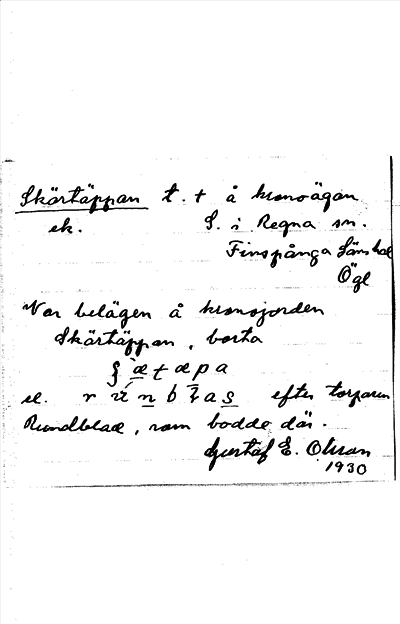 Skärtäppan t. + å kronoägan
ek. S. i Regna sn.
Finspånga läns hd
Ögl
Var belägen å kronojorden
Skärtäppan, borta
el. efter torparen
Rundblad, som bodde där.
Gustaf E. Olsson
1930